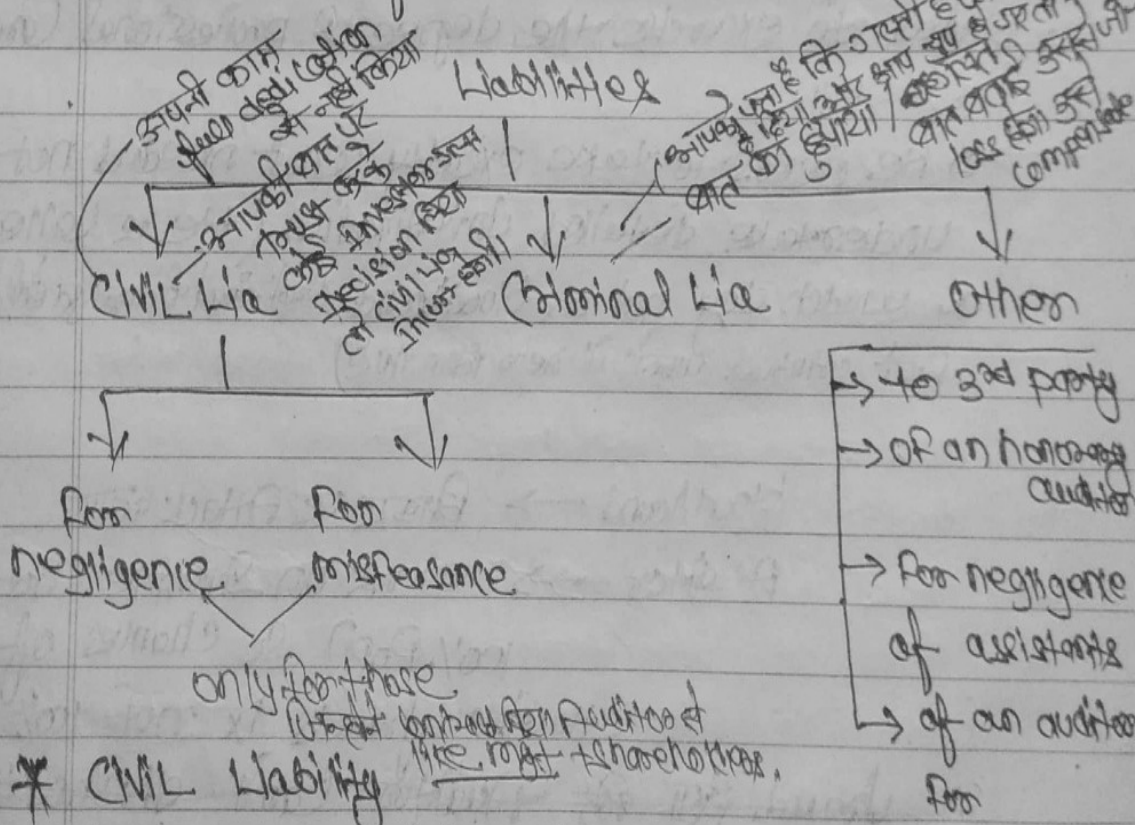 Liabilities
अपनी काम
full dedication
से नही किया
आपकी बात पर
विश्वास करके
कोई Investor उल्टा
Decision लिया
तो civil liab
Incur होगी।
आपको पता है कि गलती है
दिया और आप चुप
बात को छुपाया
बात बताई उससे जो
loss होगा उसे
compensate
CIVIL Lia
Criminal Lia
Other
→ to 3rd party
→ of an honorary
auditor
→ for negligence
of assistants
→ of an auditor
for
For negligence
For misfeasance
only for those
contract Auditor
like mgt + shareholders.
* CIVIL Liability